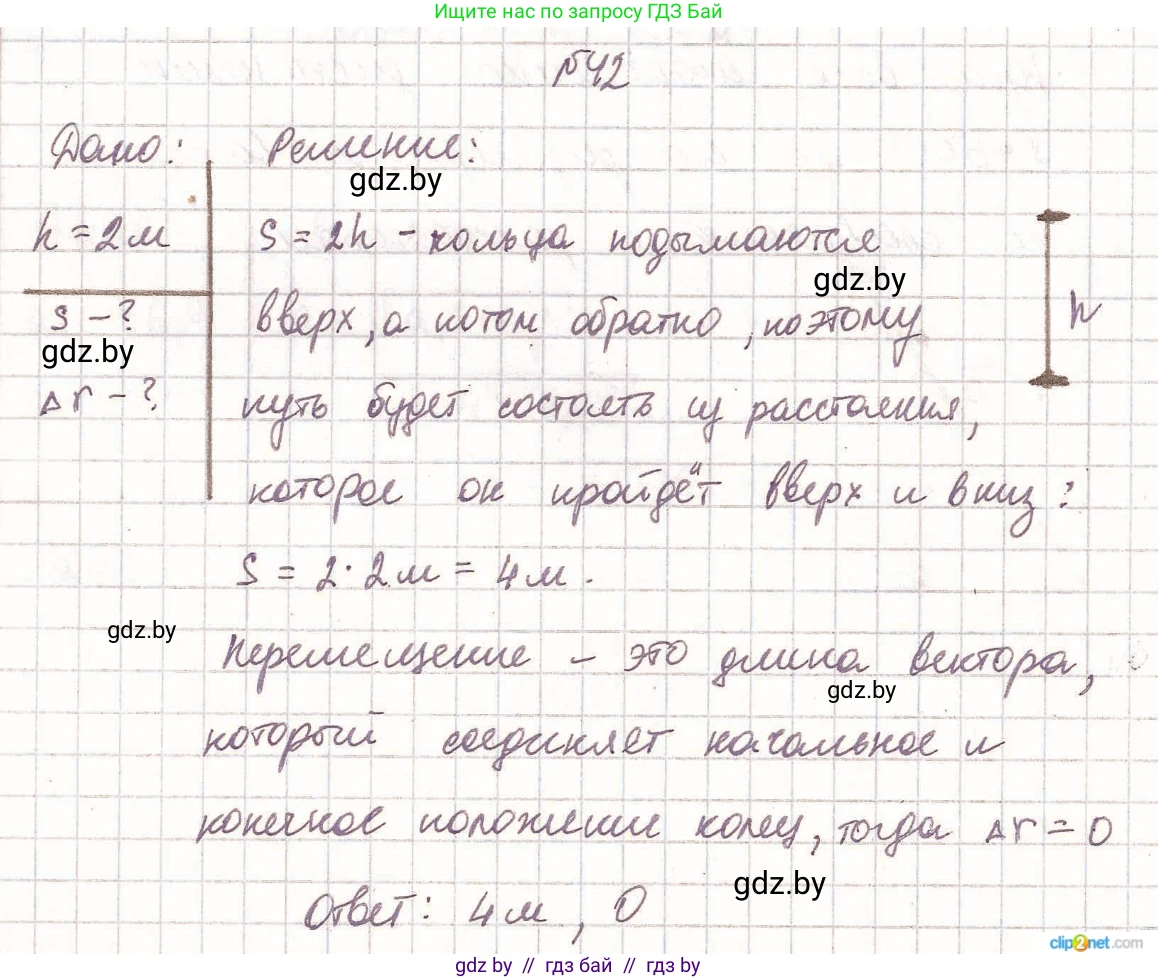 Ищите нас по запросу ГДЗ Бай
№42
Дано: Решение:
gdz.by
h = 2м s = 2h - кольца подымаются
gdz.by
s - ? вверх, а потом обратно, поэтому h
gdz.by
Δr - ? путь будет состоять из расстояния,
которое он пройдёт вверх и вниз:
s = 2·2м = 4м.
gdz.by
Перемещение – это длина вектора,
gdz.by
который соединяет начальное и
конечное положение колец, тогда Δr = 0
gdz.by
Ответ: 4м, 0
clip2net.com
gdz by // гдз бай // гдз by